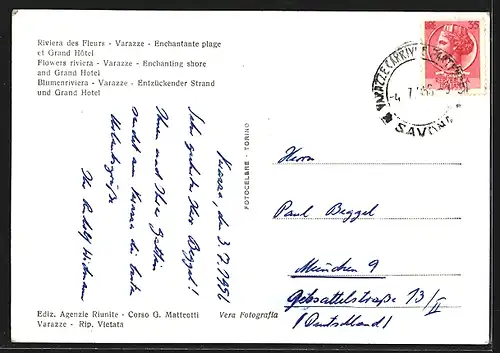 Riviera des Fleurs - Varazze - Enchantante plage
et Grand Hôtel
Flowers riviera - Varazze - Enchanting shore
and Grand Hotel
Blumenriviera - Varazze - Entzückender Strand
und Grand Hotel
Varazze, den 3.7.1956
Sehr geehrter Herr Beggel!
Ihnen und Ihrer Gattin
sendet aus Varazze die besten
Urlaubsgrüße
Ihr Rudolf
FOTOCELERE - TORINO
VARAZZE
SAVONA
Herrn
Paul Beggel
München 9
Gebsattelstraße 13/II
(Deutschland)
Ediz. Agenzie Riunite - Corso G. Matteotti
Varazze - Rip. Vietata
Vera Fotografia